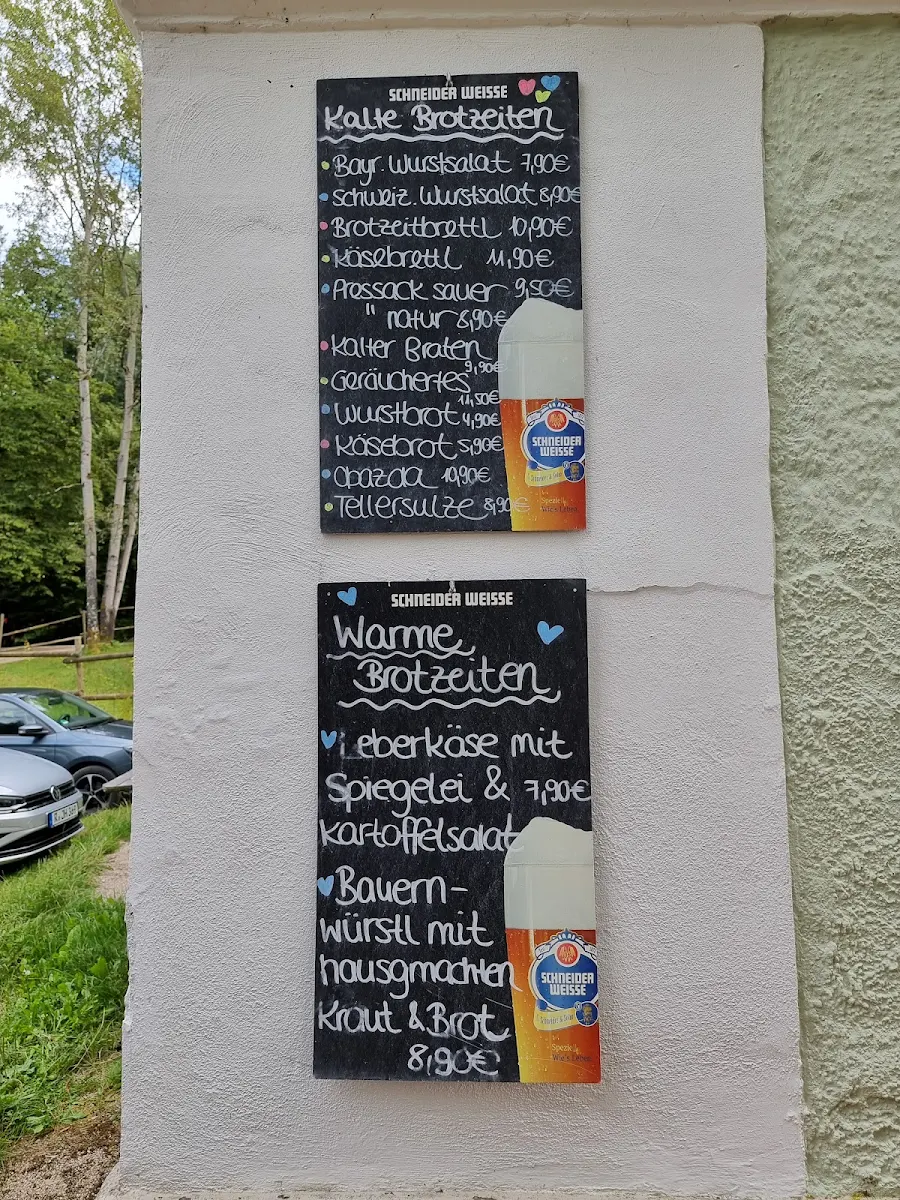 SCHNEIDER WEISSE
Kalte Brotzeiten
Bayr. Wurstsalat 7,90€
Schweiz. Wurstsalat 8,90€
Brotzeitbrettl 10,90€
Käsebrettl 11,90€
Pressack sauer 9,50€
" natur 8,90€
Kalter Braten
9,90€
Geräuchertes
11,50€
Wurstbrot 4,90€
Käsebrot 5,90€
Obazda 10,90€
Tellersulze 8,90€
SCHNEIDER
WEISSE
Spezie
Wie's Leben.
SCHNEIDER WEISSE
Warme
Brotzeiten
Leberkäse mit
Spiegelei & 7,90€
Kartoffelsalat
Bauern-
würstl mit
hausgmachten
Kraut & Brot
8,90€
SCHNEIDER
WEISSE
Spezie
Wie's Leben